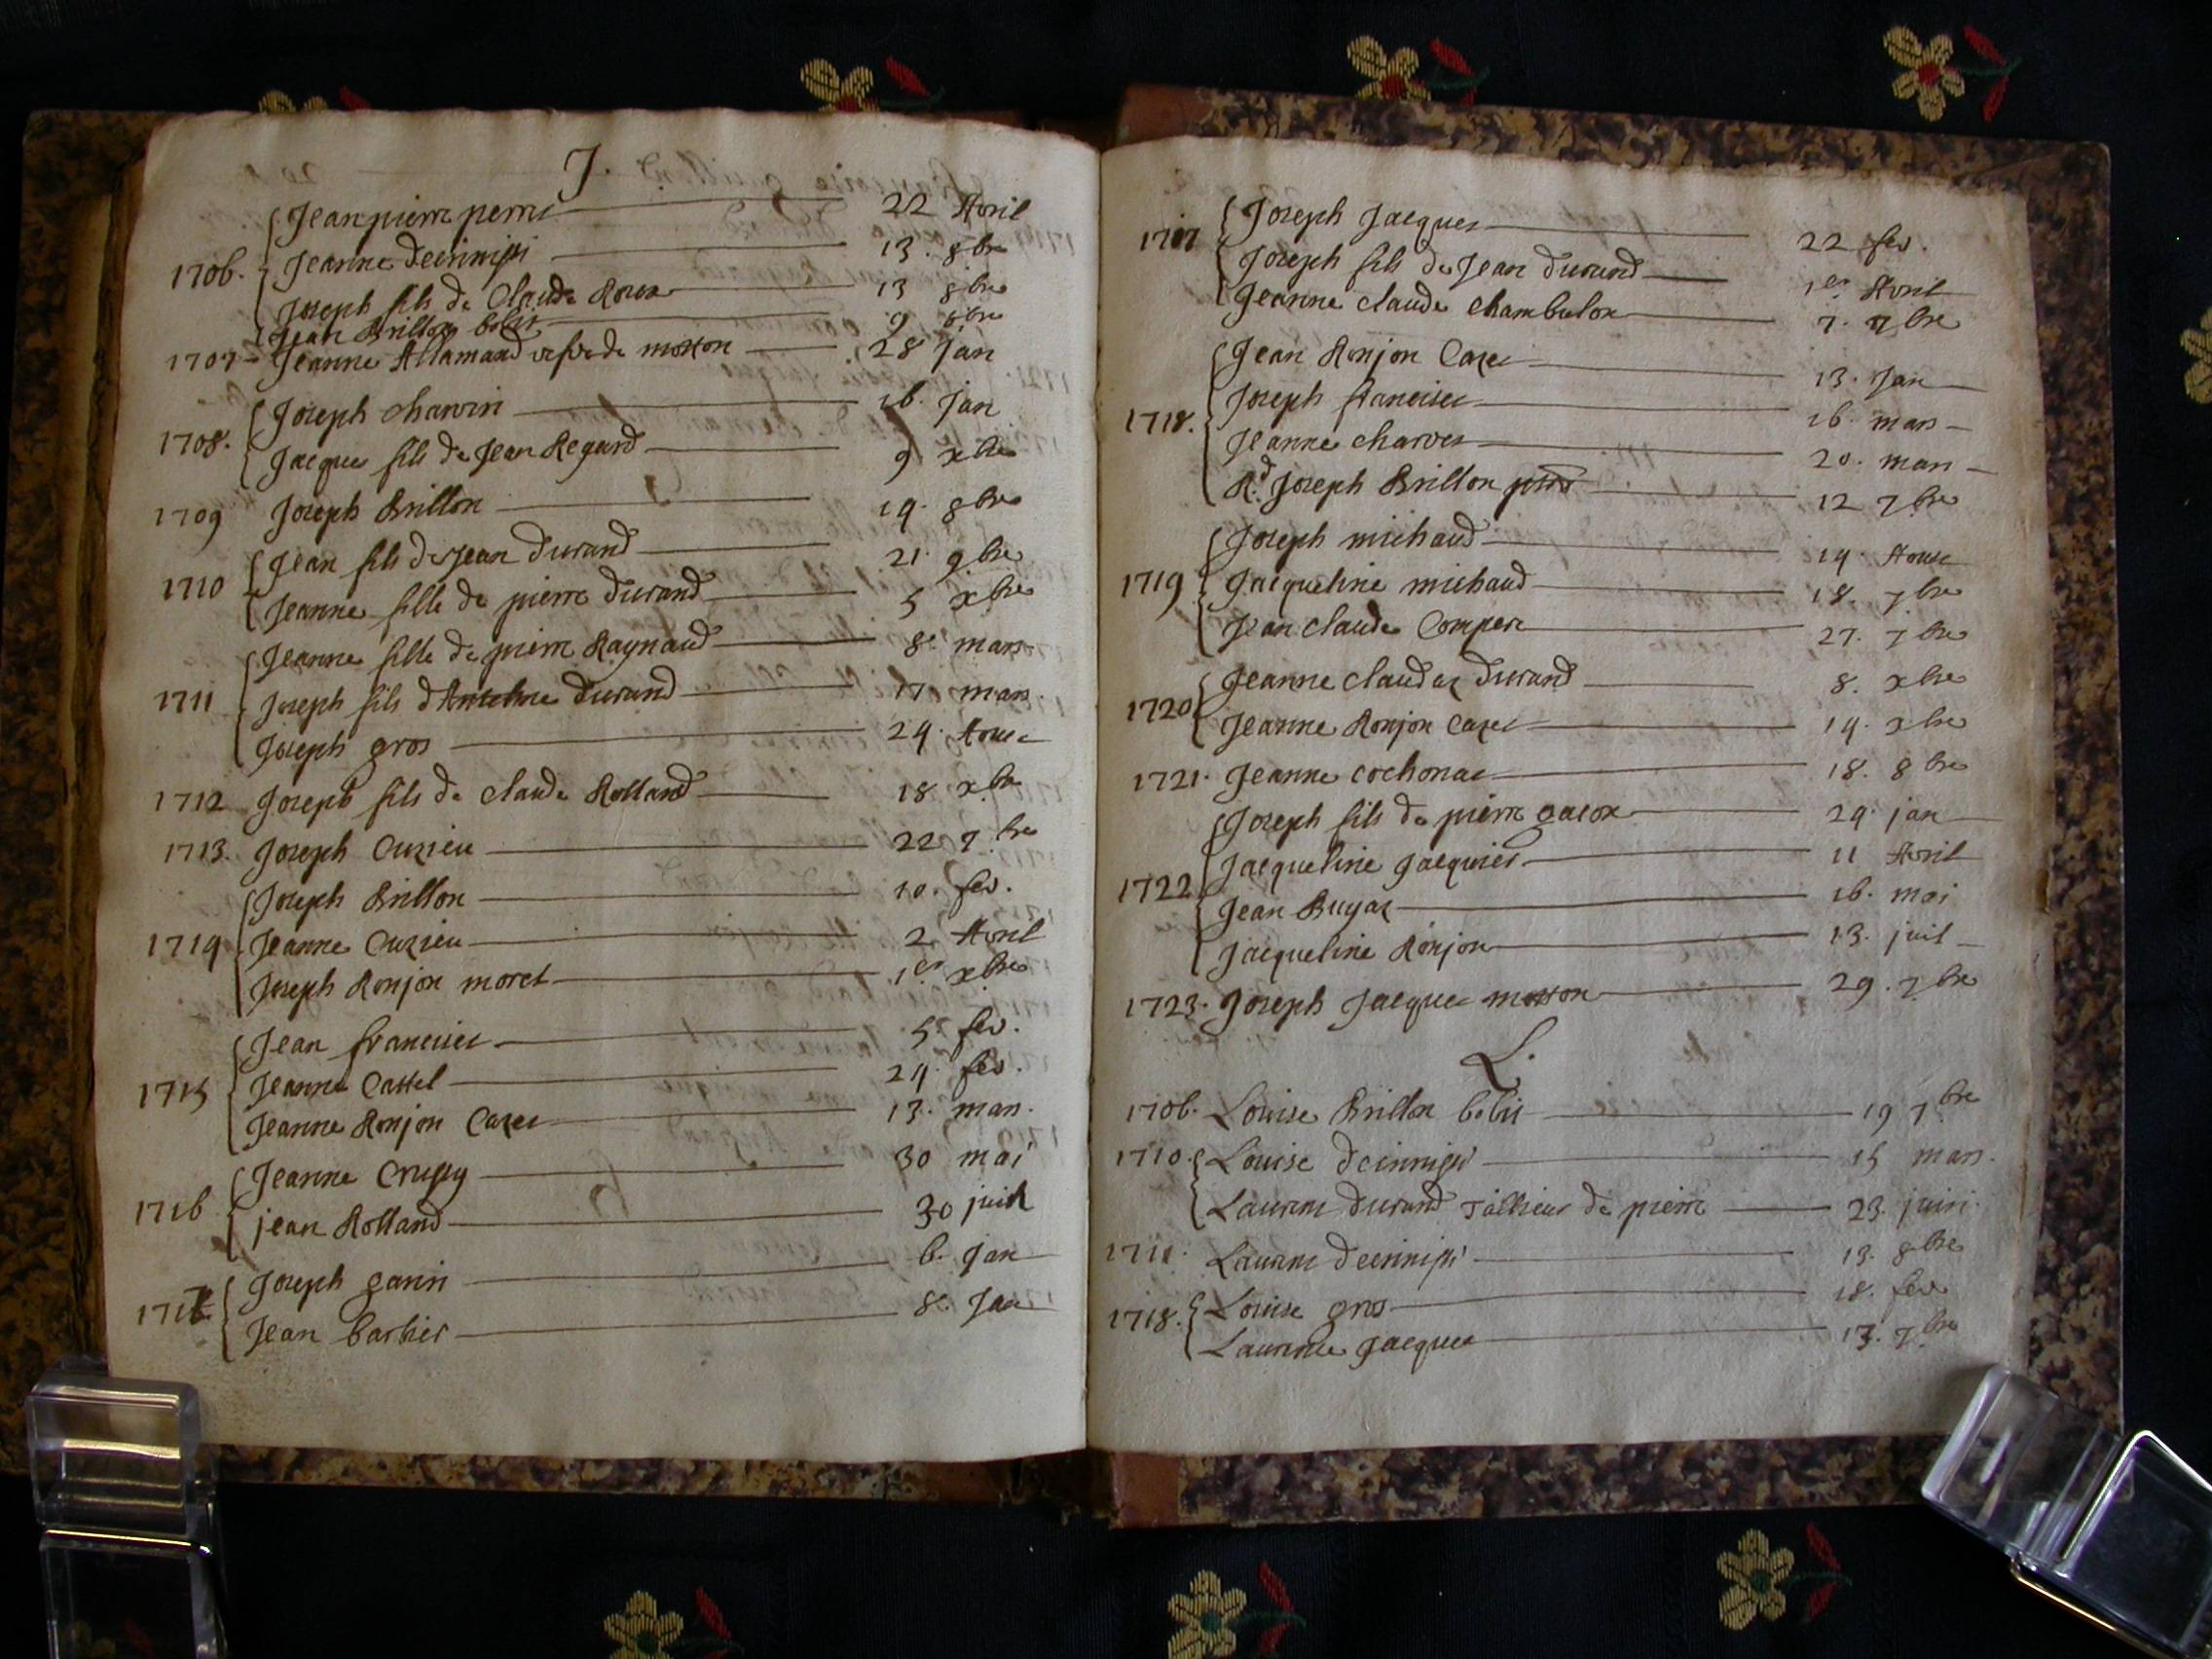 J.
Jean pierre perret 22 Avril
1706. Jeanne decinnissi 13. 8bre
Joseph fils de Claude Roux 13 8bre
Jean Brillon bobis 9 8bre
1707 - Jeanne Allamand vefve de motton 28 Jan
Joseph charvin 16. Jan
1708. Jacques fils de Jean Regard 9 xbre
1709 Joseph Brillon 19. 8bre
1710 Jean fils de Jean Durand 21. 9bre
Jeanne fille de pierre Durand 5 xbre
Jeanne fille de pierre Raynaud 8. mars
1711 Joseph fils d'Antelme Durand 17 mars
Joseph gros 24. Aout
1712 Joseph fils de claude Rolland 18 xbre
1713. Joseph Cuzieu 22 7bre
Joseph Brillon 10. fev.
1714 Jeanne Cuzieu 2 Avril
Joseph Ronjon moret 1er xbre
Jean francises 5 fev.
1715 Jeanne Cattel 24. fev.
Jeanne Ronjon Cazet 13. mars
Jeanne Crussy 30 mai
1716 jean Rolland 30 juil
Joseph garin 6. Jan
1717 Jean barbier 8. Jan
1717 Joseph Jacques 22 fev.
Joseph fils de Jean Durand 1er Avril
Jeanne claude chambulon 7. 7bre
Jean Ronjon Cazet 13. Jan
Joseph francises 16. mars
1718. Jeanne charves 20. mars
Rd. Joseph Brillon 12 7bre
Joseph michaud 14 Aout
1719 Jacqueline michaud 18. 7bre
Jean claude Compere 27. 7bre
Jeanne claudaz Durand 8. xbre
1720 Jeanne Ronjon Cazet 14. xbre
1721. Jeanne cochonat 18. 8bre
Joseph fils de pierre gacon 29. jan
Jacqueline Jacquier 11 Avril
1722 Jean Bugaz 16. mai
Jacqueline Ronjon 13. juil
1723. Joseph Jacques motton 29. 7bre
L.
1706. Louise Brillon bobis 19 7bre
1710. Louise decinnissi 15 mars.
Laurent Durand Tallieur de pierre 23. juin.
1711. Laurent decinnissi 13. 8bre
1718. Louise gros 18. fev
Laurence Jacques 13. 7bre